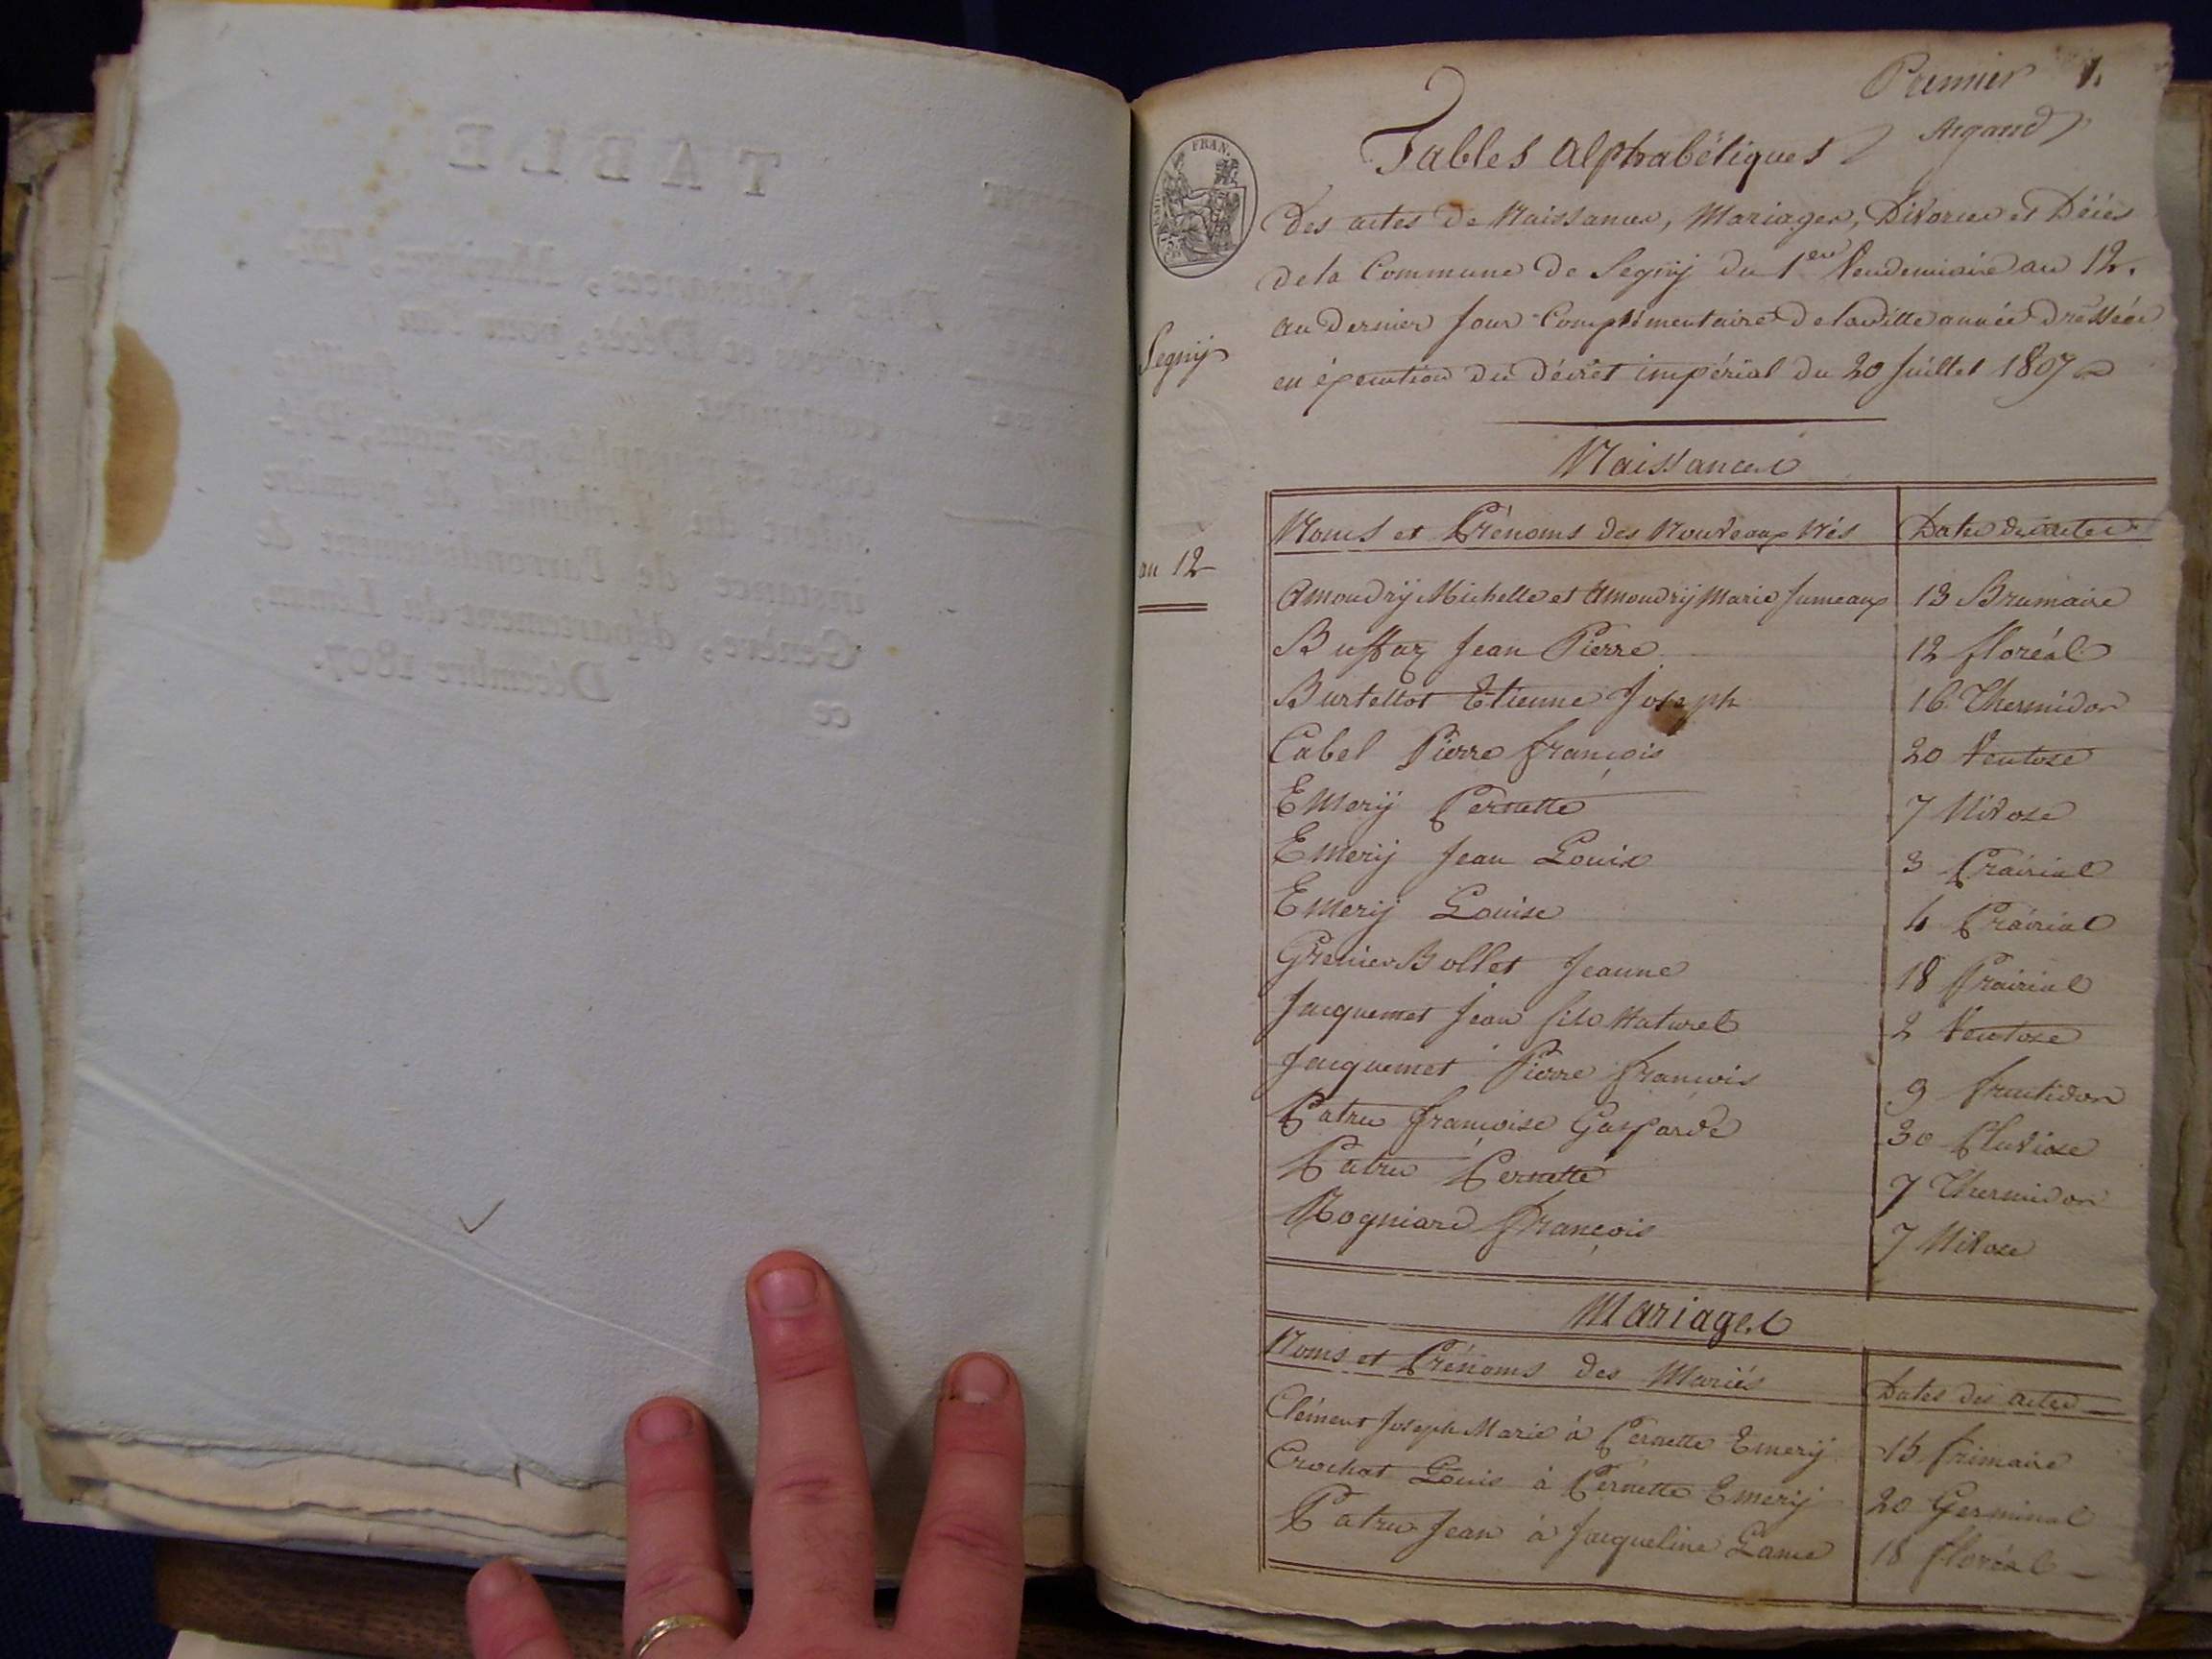 TABLE
Des Naissances, Mariages, Di-
vorces et Décès, pour l'an
contenant feuillets
cotés et paraphés par nous, Pré-
sident du Tribunal de première
instance de l'arrondissement de
Genève, département du Léman,
ce Décembre 1807.
Premier 1.
Argand
Tables Alphabétiques
FRAN.
Des actes de Naissances, Mariages, Divorces et Décès
de la Commune de Segnÿ du 1er Vendemiaire an 12.
au Dernier Jour Complémentaire de la ditte année dressées
en éxecution du Décret impérial du 20 Juillet 1807
Segnÿ
an 12
Naissances
Noms et Prénoms des Nouveaux Nés Dates des actes
Amoudrÿ Michelle et Amoudrÿ Marie Jumeaux 13 Brumaire
Buffaz Jean Pierre 12 floréal
Burtellot Etienne Joseph 16 Thermidor
Cabel Pierre françois 20 Ventose
Emerÿ Pernette 7 Nivose
Emerÿ Jean Louis 3 Prairial
Emerÿ Louise 4 Prairial
Grenier Bollet Jeanne 18 Prairial
Jacquemet Jean fils Naturel 2 Ventose
Jacquemet Pierre françois 9 fructidor
Patru françoise Gasparde 30 Pluviose
Patru Pernette 7 Thermidor
Rogniard françois 7 Nivose
Mariages
Noms et Prénoms des Mariés Dates des actes
Clément Joseph Marie à Pernette Emerÿ 15 frimaire
Crochat Louis à Pernette Emerÿ 20 Germinal
Patru Jean à Jacqueline Lame 18 floréal